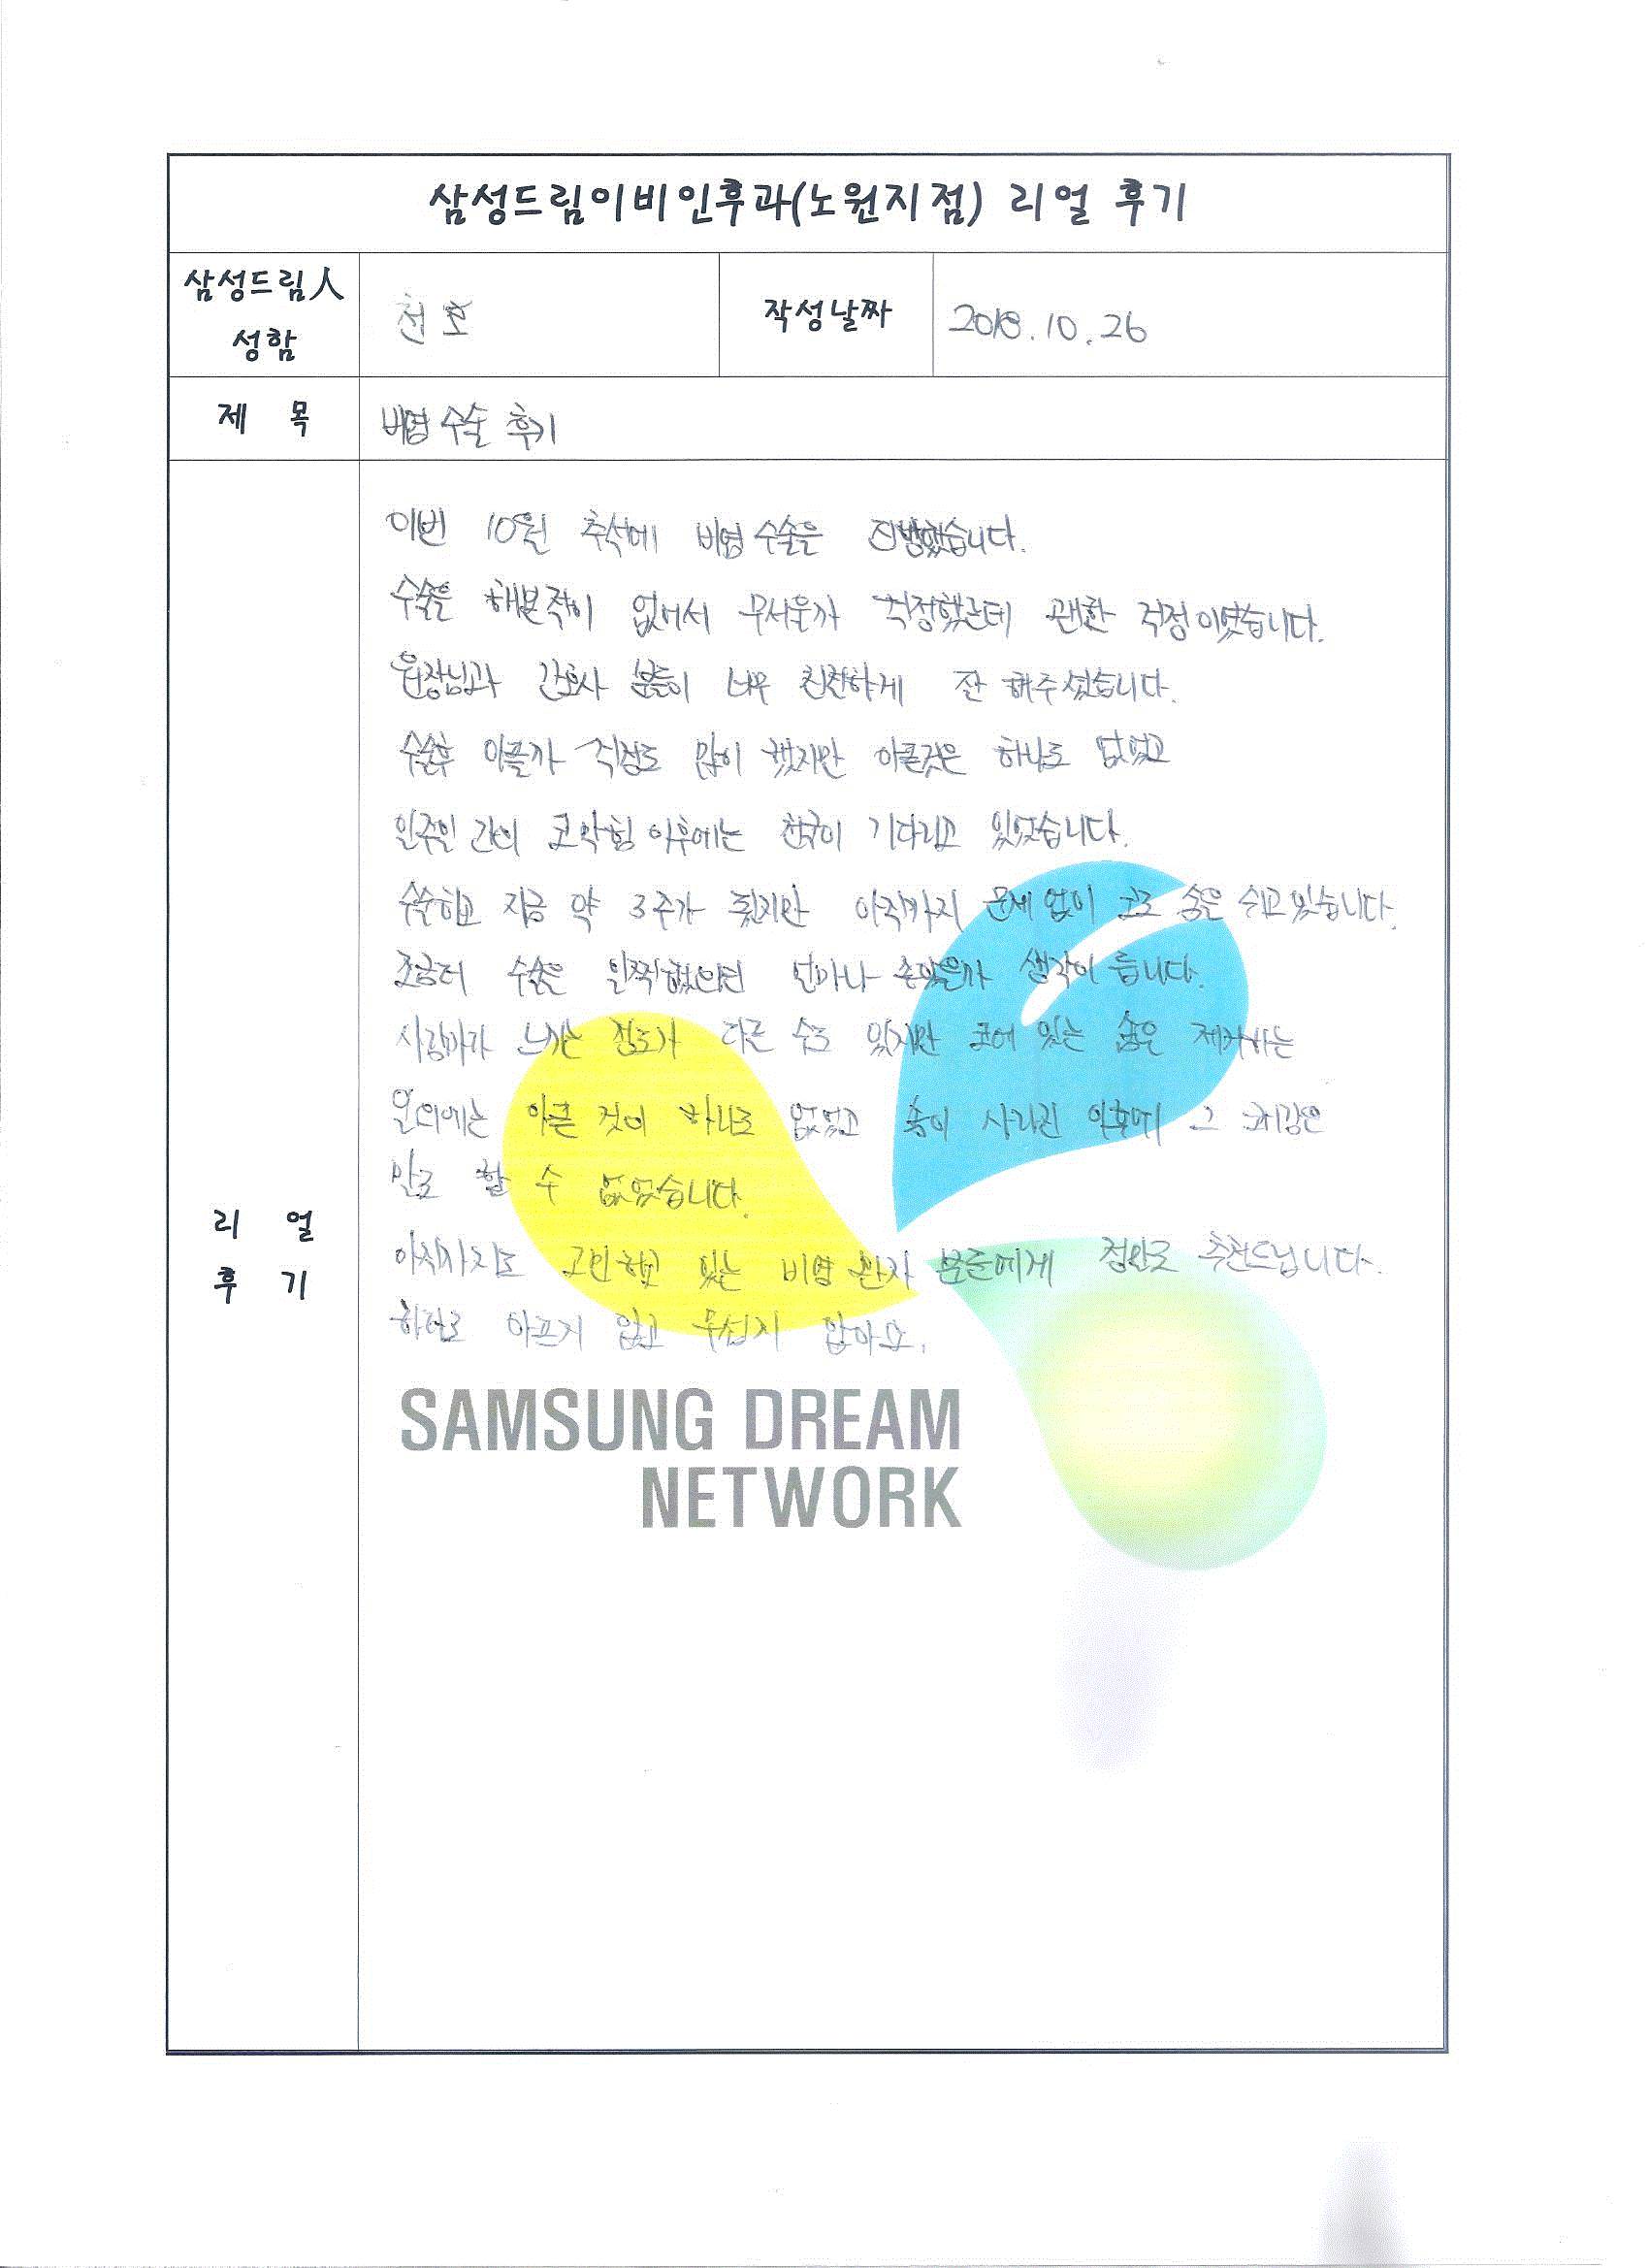 삼성드림이비인후과(노원지점) 리얼 후기
삼성드림人
성함
천호
작성날짜
2018.10.26
제 목
비염 수술 후기
이번 10월 추석에 비염 수술을 진행했습니다.
수술을 해본적이 없어서 무서울까 걱정했는데 괜한 걱정이었습니다.
원장님과 간호사 분들이 너무 친절하게 잘 해주셨습니다.
수술후 아플까 걱정도 많이 했지만 아픈것은 하나도 없었고
일주일 간의 코막힘 이후에는 천국이 기다리고 있었습니다.
수술하고 지금 약 3주가 됐지만 아직까지 문제 없이 코로 숨을 쉬고있습니다.
조금더 수술을 일찍했으면 얼마나 좋았을까 생각이 듭니다.
사람마다 느끼는 정도가 다를 수도 있지만 코에 있는 솜을 제거하는
일외에는 아픈 것이 하나도 없었고 솜이 사라진 이후에 그 쾌감은
말로 할 수 없었습니다.
아직까지도 고민하고 있는 비염 환자 분들에게 정말로 추천드립니다.
하나도 아프지 않고 무섭지 않아요.
리 얼
후 기
SAMSUNG DREAM
NETWORK